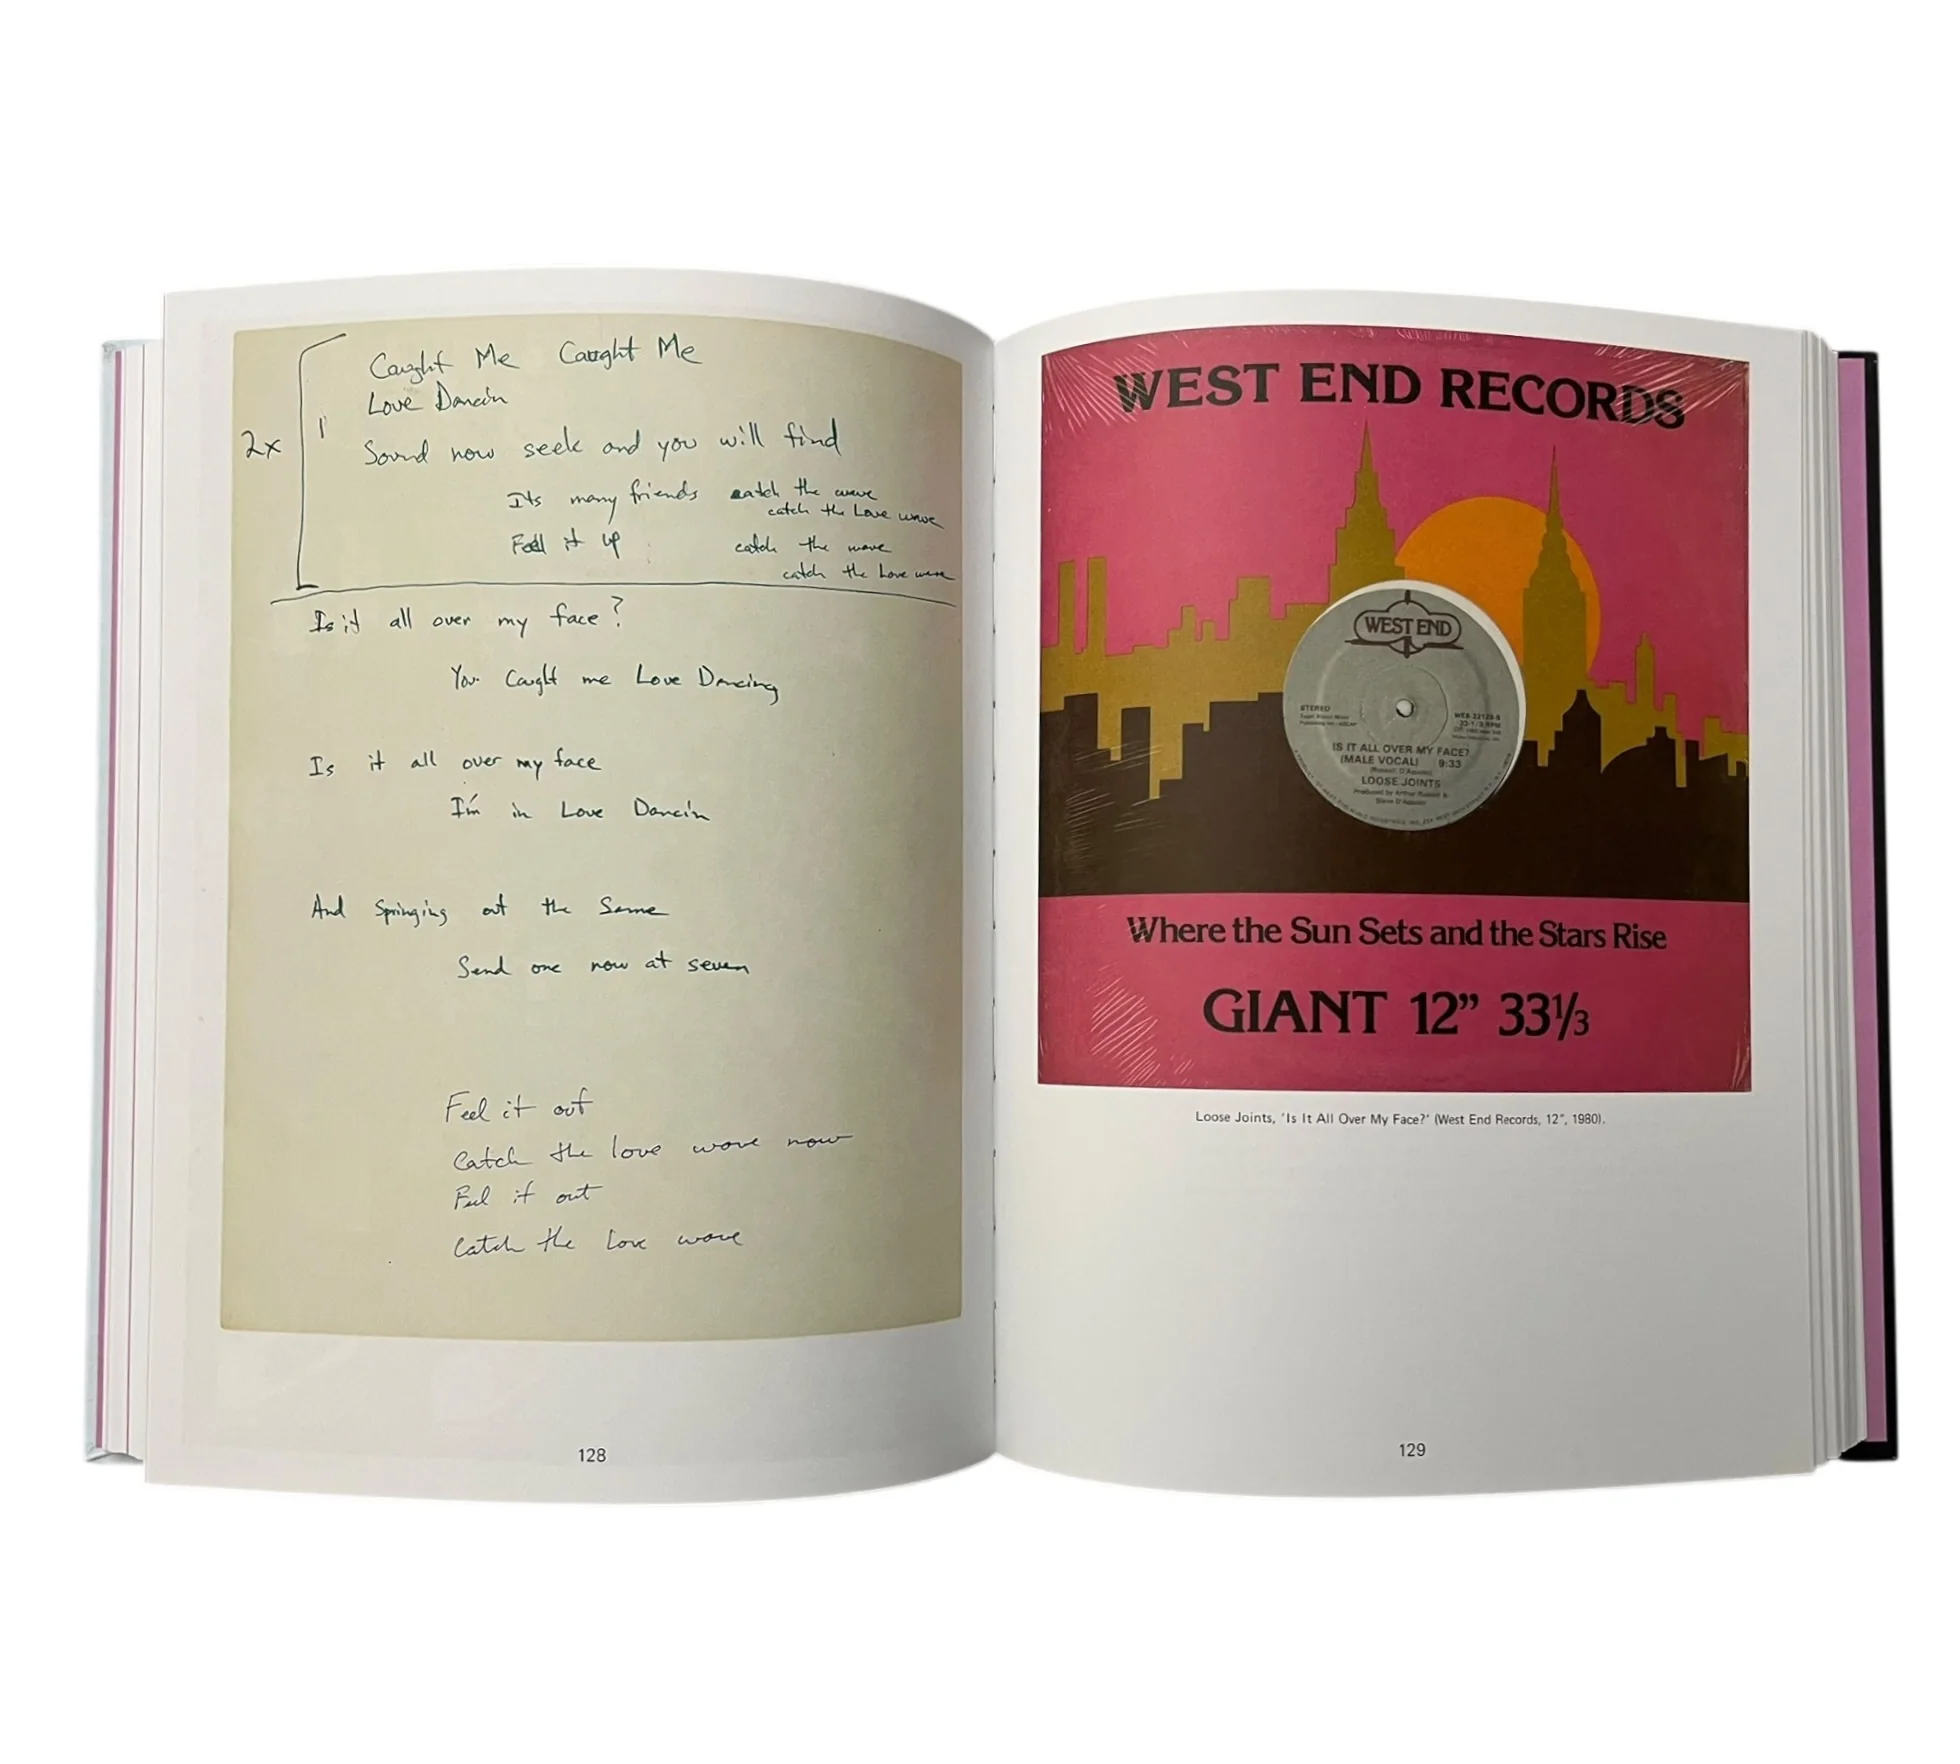 Caught Me Caught Me
Love Dancin
2x
1
Sound now seek and you will find
Its many friends catch the wave
catch the Love wave
Feel it up catch the wave
catch the Love wave
Is it all over my face?
You Caught me Love Dancing
Is it all over my face
I'm in Love Dancin
And Springing out the Same
Send one now at seven
Feel it out
Catch the love wave now
Feel it out
Catch the love wave
128
WEST END RECORDS
WEST END
STEREO
33-1/3 RPM
IS IT ALL OVER MY FACE?
(MALE VOCAL) 9:33
LOOSE JOINTS
Produced by Arthur Russell &
Steve D'Aquisto
Where the Sun Sets and the Stars Rise
GIANT 12” 33⅓
Loose Joints, 'Is It All Over My Face?' (West End Records, 12", 1980).
129